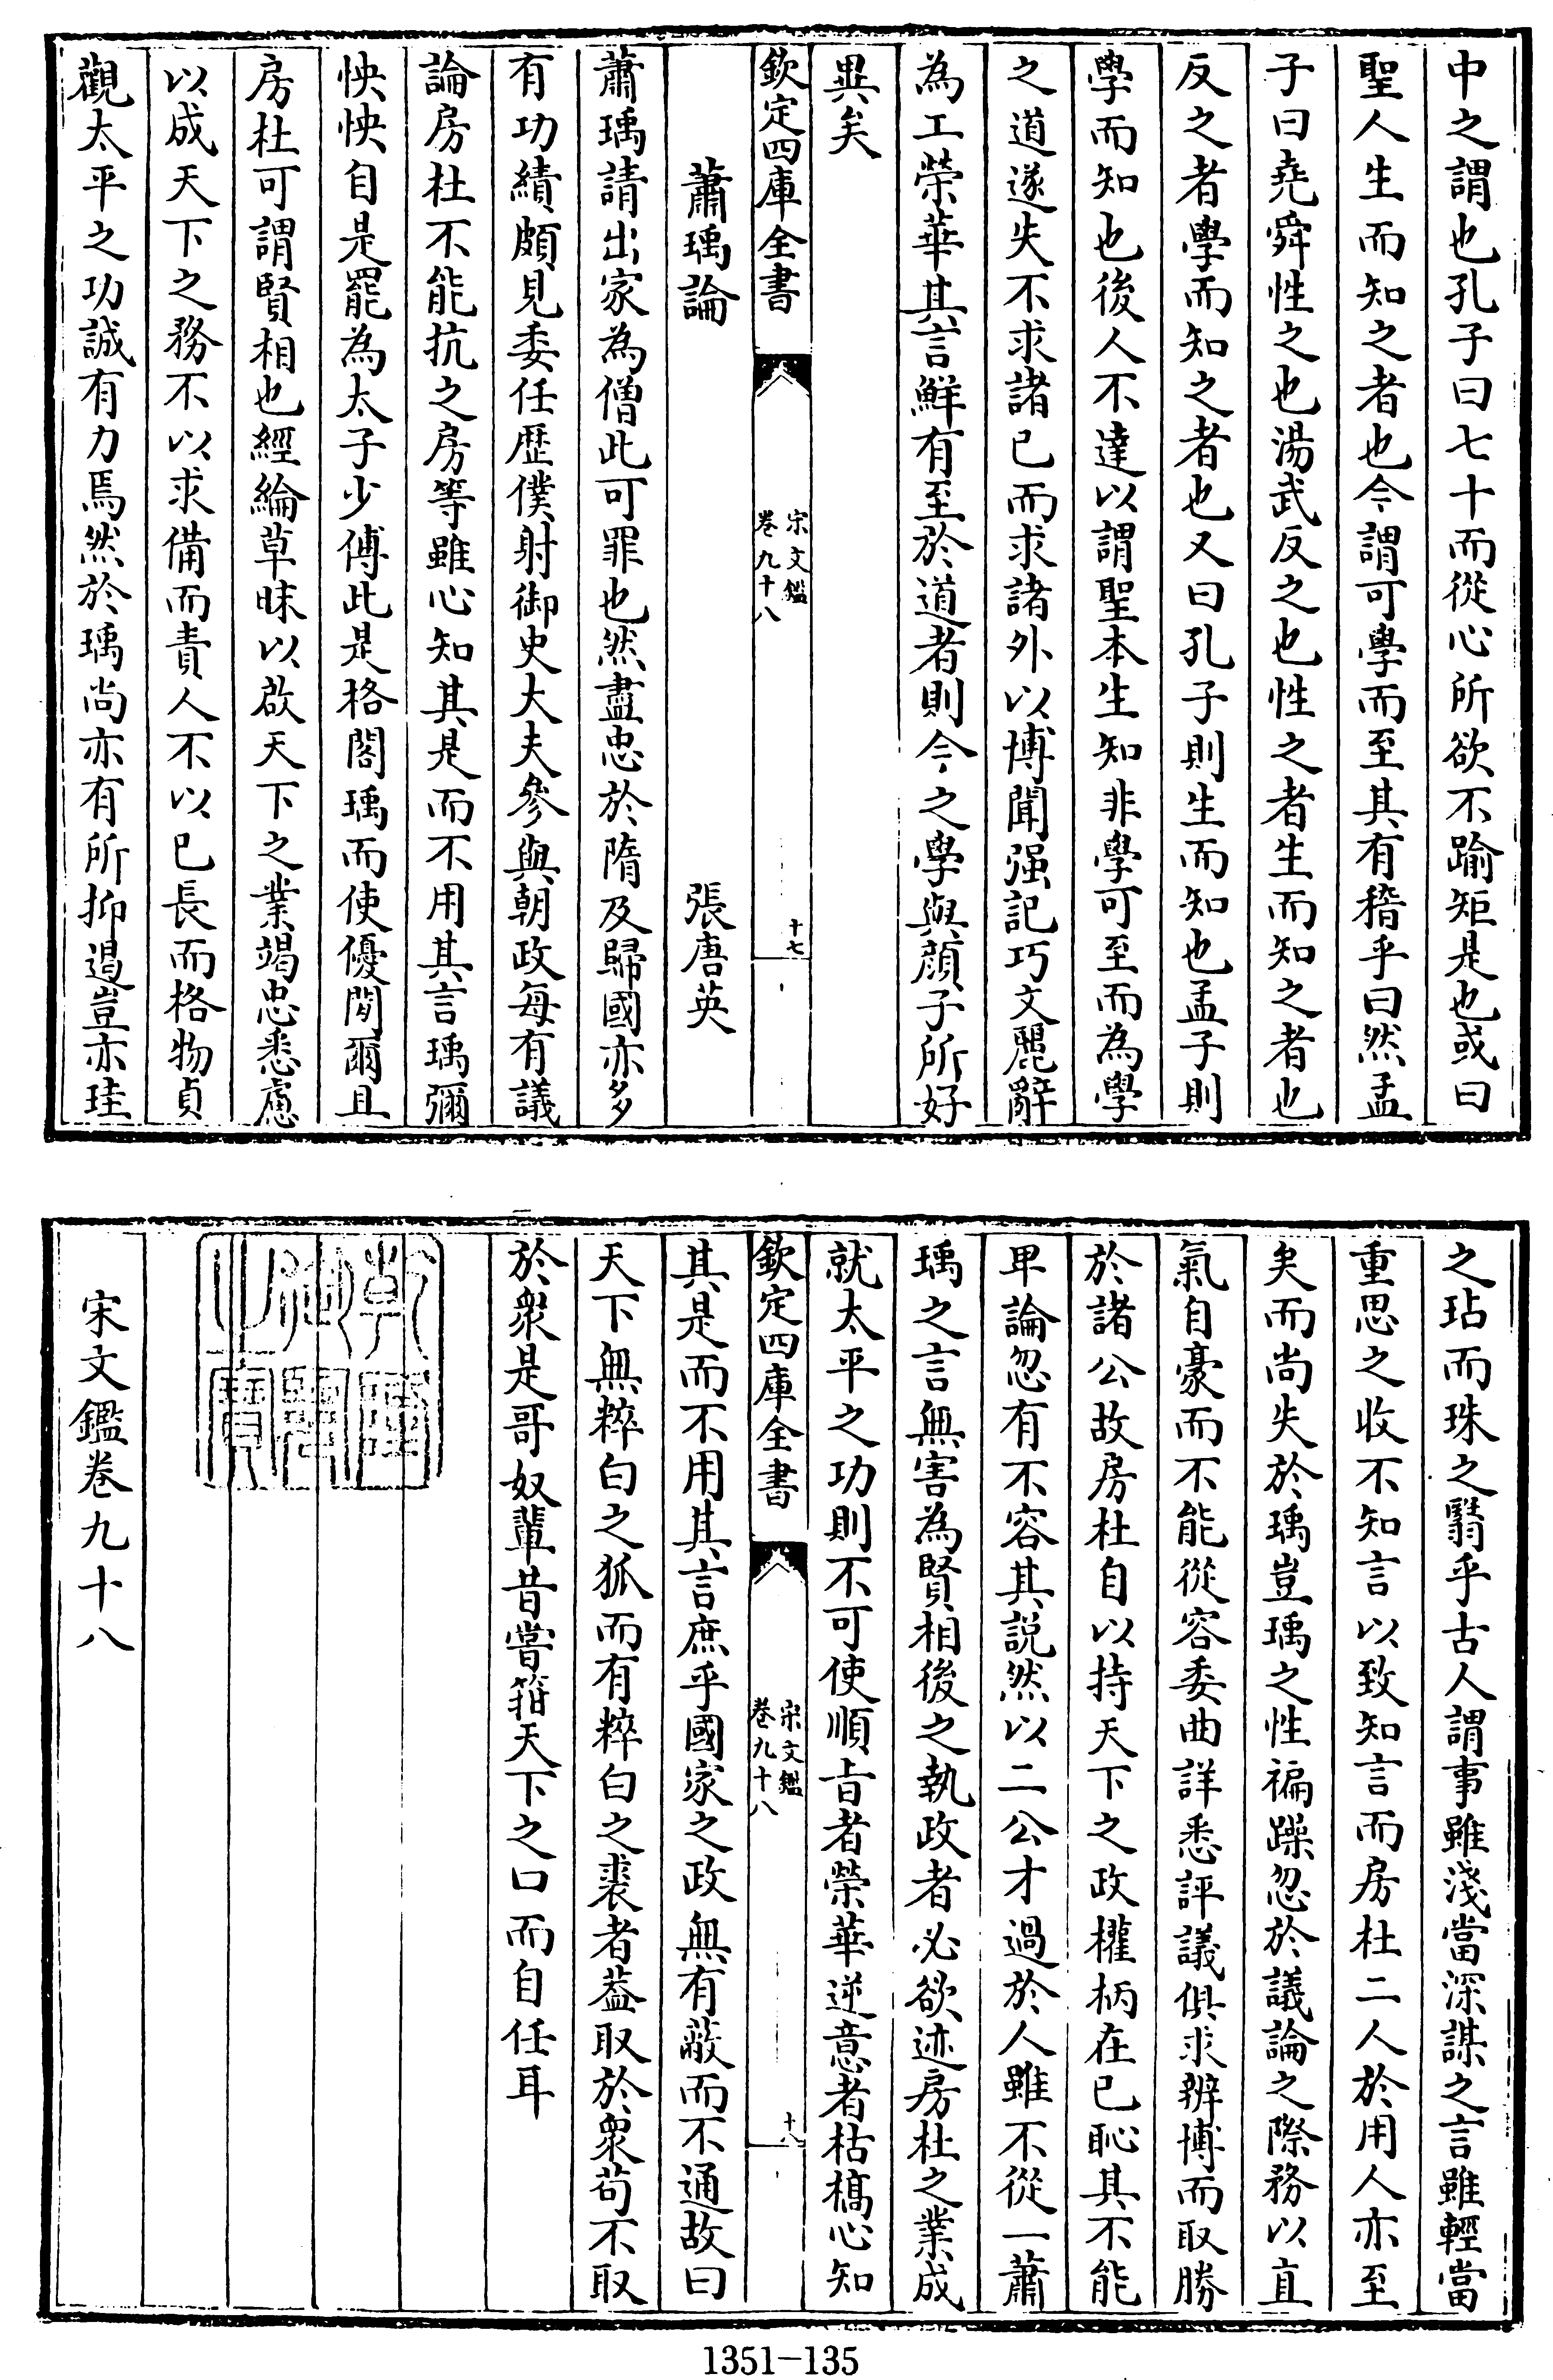 中之謂也孔子曰七十而從心所欲不踰矩是也或曰
聖人生而知之者也今謂可學而至其有稽乎曰然孟
子曰堯舜性之也湯武反之也性之者生而知之者也
反之者學而知之者也又曰孔子則生而知也孟子則
學而知也後人不達以謂聖本生知非學可至而為學
之道遂失不求諸己而求諸外以博聞强記巧文麗辭
為工榮華其言鮮有至於道者則今之學與顔子所好
異矣
欽定四庫全書
宋文鑑
卷九十八
十七
蕭瑀論 張唐英
蕭瑀請出家為僧此可罪也然盡忠於隋及歸國亦多
有功績頗見委任歴僕射御史大夫參與朝政每有議
論房杜不能抗之房等雖心知其是而不用其言瑀彌
怏怏自是罷為太子少傅此是格閣瑀而使優閒爾且
房杜可謂賢相也經綸草昧以啟天下之業竭忠悉慮
以成天下之務不以求備而責人不以已長而格物貞
觀太平之功誠有力焉然於瑀尚亦有所抑遏豈亦珪
之玷而珠之翳乎古人謂事雖淺當深謀之言雖輕當
重思之收不知言以致知言而房杜二人於用人亦至
矣而尚失於瑀豈瑀之性褊躁忽於議論之際務以直
氣自豪而不能從容委曲詳悉評議俱求辨博而取勝
於諸公故房杜自以持天下之政權柄在已恥其不能
卑論忽有不容其説然以二公才過於人雖不從一蕭
瑀之言無害為賢相後之執政者必欲迹房杜之業成
就太平之功則不可使順旨者榮華逆意者枯槁心知
欽定四庫全書
宋文鑑
卷九十八
十八
其是而不用其言庶乎國家之政無有蔽而不通故曰
天下無粹白之狐而有粹白之裘者葢取於衆苟不取
於衆是哥奴輩昔嘗箝天下之口而自任耳
乾隆御覽之寶
宋文鑑卷九十八
1351-135